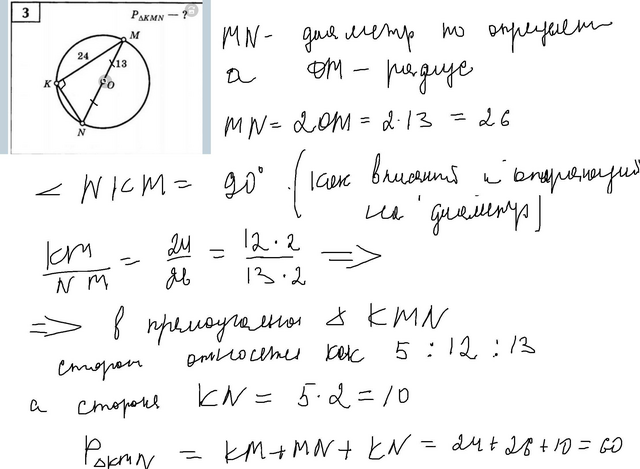 3
P△KMN — ?
M
24
13
K
O
N
MN - диаметр по определен
а OM - радиус
MN = 2OM = 2·13 = 26
∠ NKM = 90° (как вписаный и опирающий
на диаметр)
KM/NM = 24/26 = 12·2/13·2 ⇒
⇒ в прямоуголном △ KMN
сторон относятся как 5 : 12 : 13
а сторона KN = 5·2 = 10
P△KMN = KM + MN + KN = 24 + 26 + 10 = 60